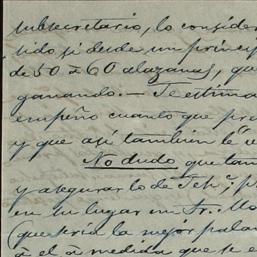 subsecretario, lo consider
tido si desde un princip
de 50 à 60 alazanas, qu
ganando. — Te estima
empeño cuanto que pro
y que así tambien le
No dudo que tam
y asegurar lo de Tep.c p
en tu lugar un Sr. Mo
(que sería la mejor pala
à él à medida que se e